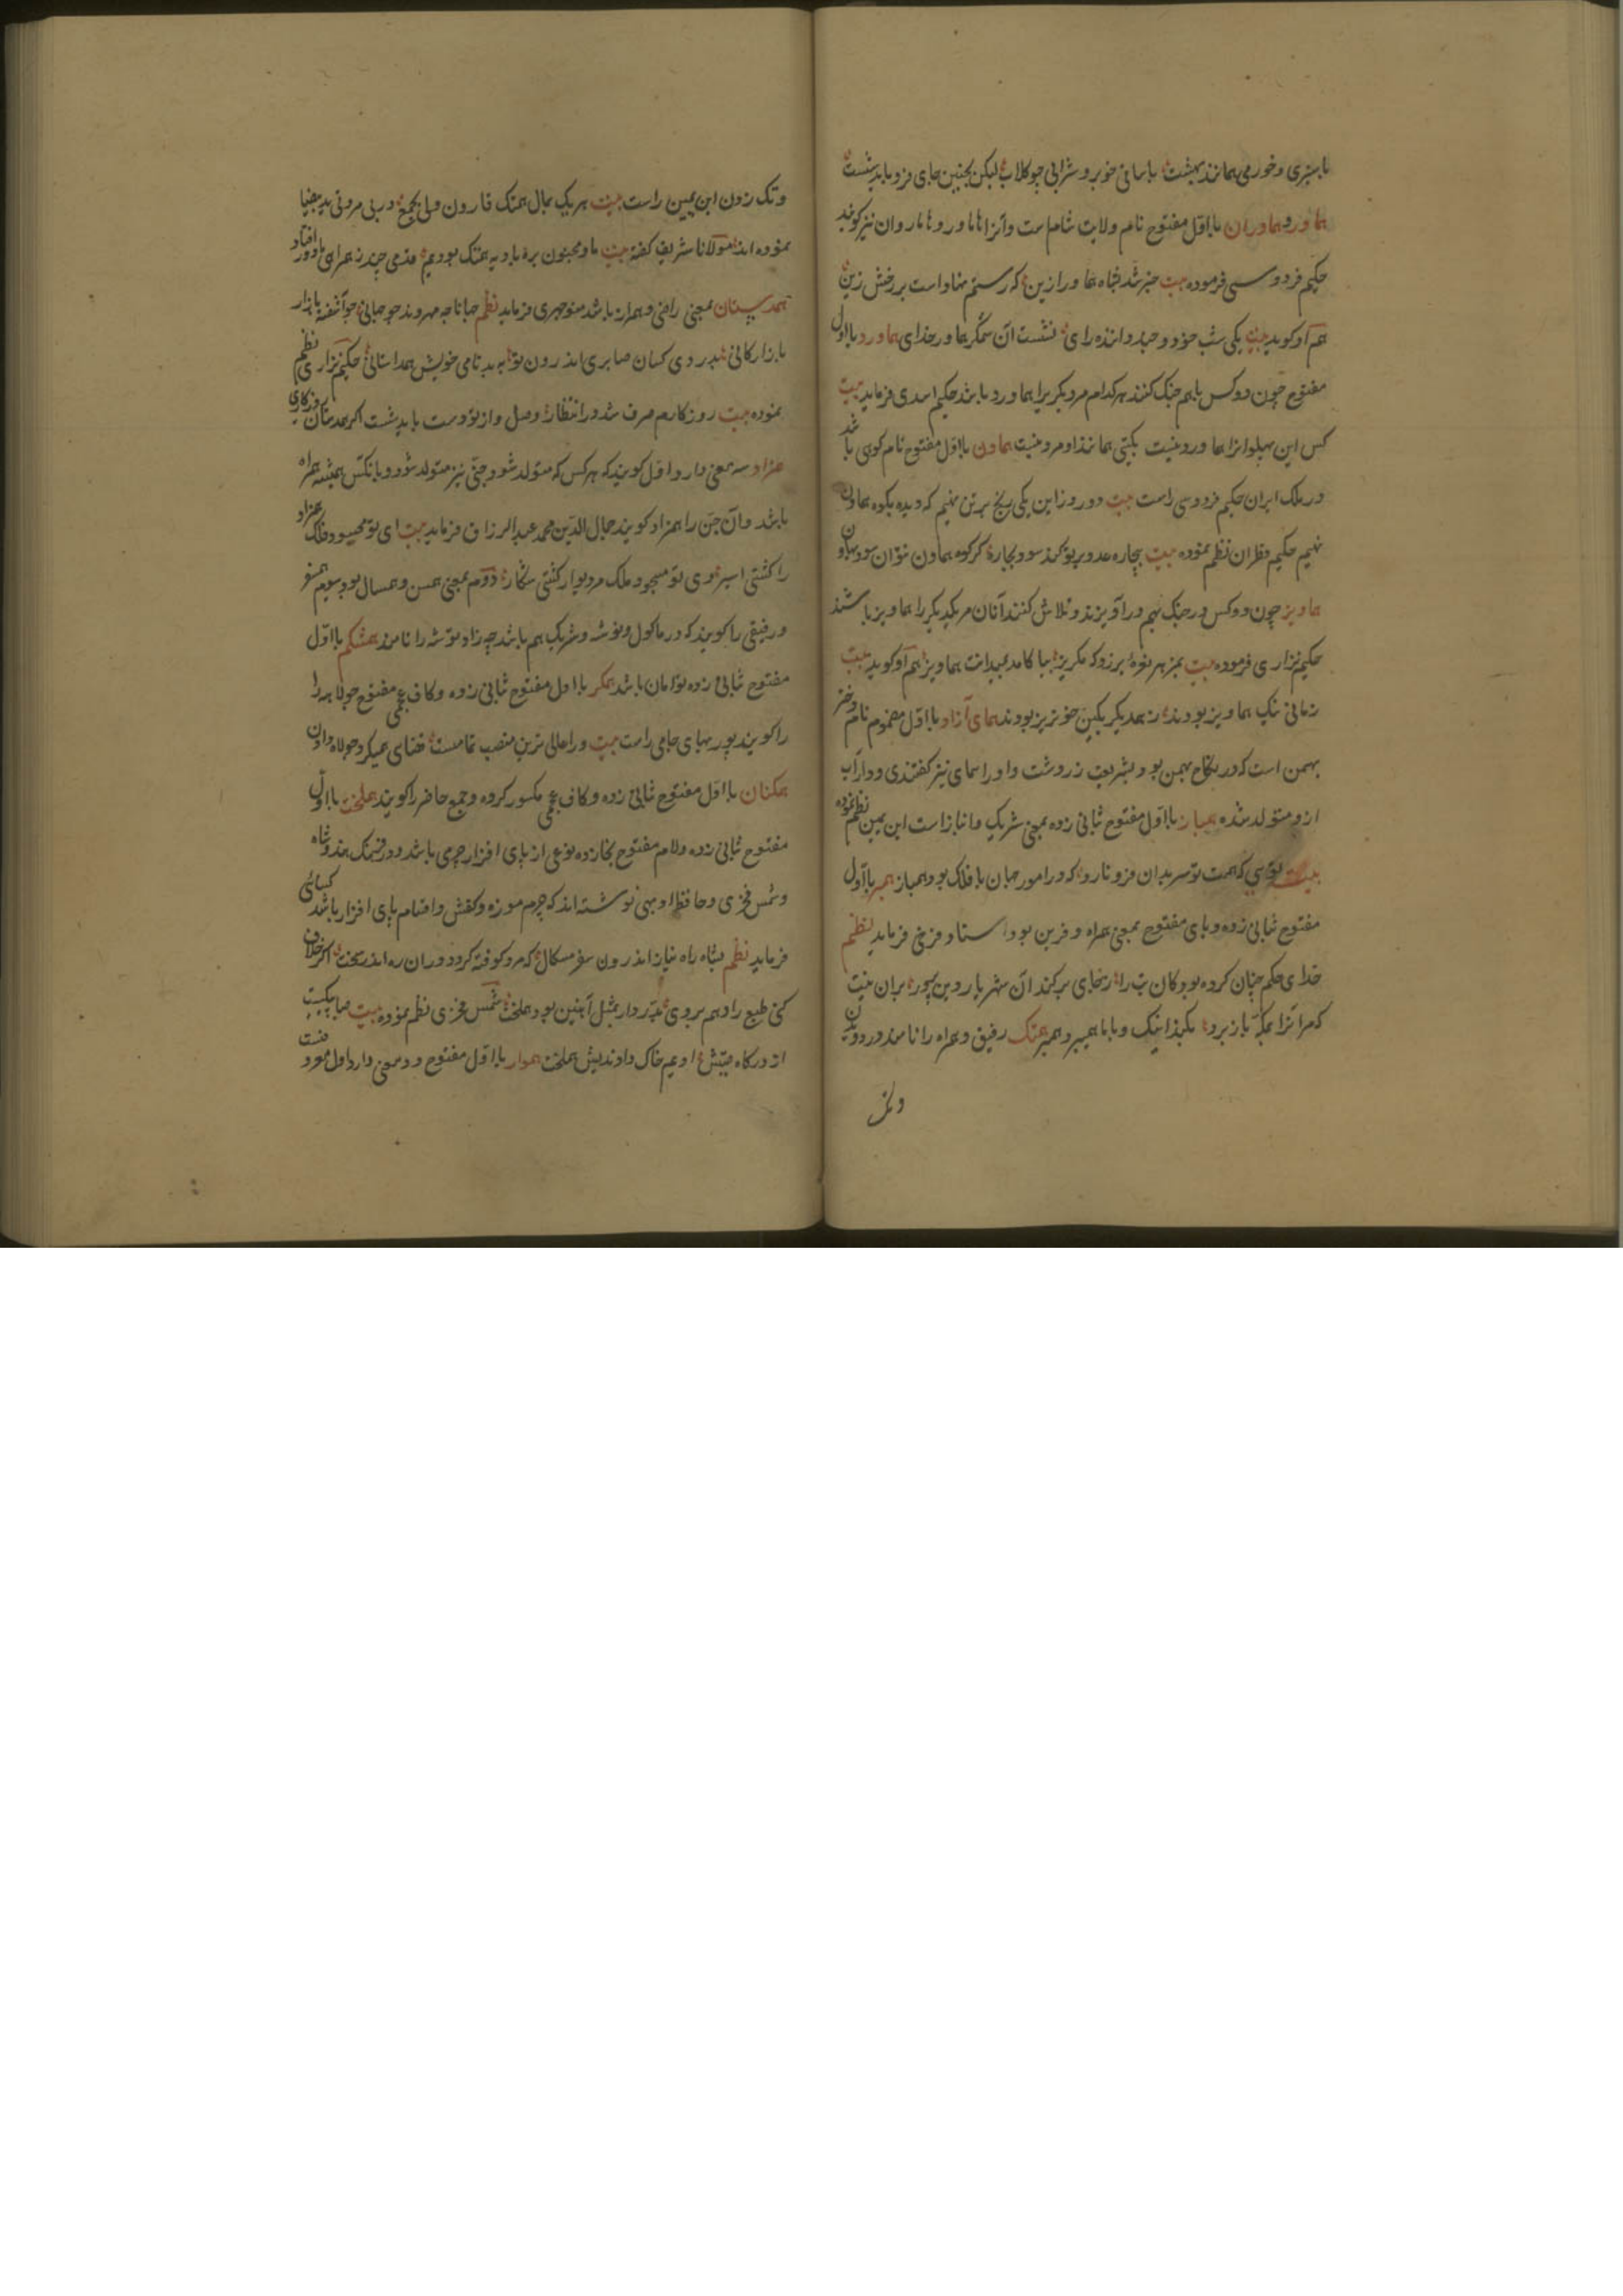 با سبزی و خورمی همانند بهشت با ساقی خوبرو و شرابی چو کلاب لیکن بچنین جای فرو باید نشست
هاورد و هاوران با اول مفتوح نام ولایت شام است و آنرا هاماور و هاماروان نیز کویند
حکیم فردوسی فرموده بیت خبر شد بشاه هماور ازین که رستم نهاد است بر رخش زین
هم او کوید بیت یکی شب خود و چند داننده رای نشست آن ستمکر هماور خدای هماورد با اول
مفتوح چون دو کس با هم جنک کنند هر کدام مر دیکریرا هماورد باشد حکیم اسدی فرماید بیت
کس این پهلوانرا هماورد نیست بکیتی همانند او مرد نیست هماون با اول مفتوح نام کوهی باشد
در ملک ایران حکیم فردوسی راست بیت دو روز این یکی رنج بر تن نهیم که دیده بکوه هماون
نهیم حکیم قطران نظم نموده بیت بیچاره عدو بر تو کند سود بچاره کر کوه هماون نتوان سود بهاون
هماویز چون دو کس در جنک بهم در آویزند و تلاش کنند آنان مر یکدیکر را هماویز باشند
حکیم نزاری فرموده بیت هم او کوید بیت
زمانی نیک هماویز بودند ز همدیکر بکین خونریز بودند همای آزاد با اول مضموم نام دختر
بهمن است که در نکاح بهمن بود بشریعت زردشت و او را سمای نیز کفتندی و داراب
ازو متولد شده همباز با اول مفتوح ثانی زده بمعنی شریک و انباز است ابن یمین نظم نموده
بیت تو سی که همت تو سر بدان فرو نارد که در امور جهان با فلک بود همباز همبر با اول
مفتوح ثانی زده و بای مفتوح بمعنی همراه و قرین بود استاد فرخی فرماید نظم
خدای حکم چنان کرده بود کان بت را ز جای برکند آن شهریار دین پرور بران نیت
که مر آنرا بمکه باز برد بکند اینک و با ما همیبرد همبر همتک رفیق و همراه را نامند در دویدن
وتک زدن ابن یمین راست بیت هر یک بمال همتک قارون ولی بجمع در بی مروتی ید بیضا
نموده اند مولانا شریف کفته بیت ما و مجنون بره بادیه همتک بودیم قدمی چند ز همراهی ما دور افتاد
همدستان بمعنی راضی و همراز باشد منوچهری فرماید نظم جهانا چه بدمهر و بدخو جهانی چو آشفته بازار
بازارکانی بدرد کسان صابری اندرون تو به بدنامی خویش همداستانی حکیم نزاری نظم
نموده بیت روزکارم صرف شد در انتظار وصل و از تو دست باید شست اکر همدستان روزکاری
همزاد سه معنی دارد اول کویند که هر کس که متولد شود جنی نیز متولد شود و با آنکس همیشه همراه
باشد و آن جن را همزاد کویند جمال الدین محمد عبدالرزاق فرماید بیت ای تو محسود فلک همزاد
را کشتی اسیر وی تو مسجود ملک مر دیو را کشتی شکار دوم بمعنی همسن و همسال بود سیوم همسفر
و رفیقی را کویند که در ماکول و توشه و شریک هم باشد چه زاد توشه را نامند همشکم با اول
مفتوح ثانی زده توامان باشد همکر با اول مفتوح ثانی زده و کاف عجمی مفتوح جولاهه را
را کویند پور بهای جامی راست بیت ورا عالی ترین منصب تمامست قضای همیکر و جولاه دادن
همکنان با اول مفتوح ثانی زده و کاف عجمی مکسور کروه و جمع حاضر را کویند هملخت با اول
مفتوح ثانی زده و لام مفتوح بخا زده نوعی از پای افزار چرمی باشد و در فرهنک هندوشاه
و شمس فخری و حافظ اوبهی نوشته اند که چرم موزه و کفش و اقسام پای افزار باشد کسائی
فرماید نظم بشاه راه نیاز اندرون سفر مسکال که مرد کوفته کردد دران ره اندر سخت اکر خلاف
کنی طبع را و هم بروی بدرد ار بمثل آهنین بود هملخت شمس فخری نظم نموده بیت
از درکاه جیش او بیم خاک داوندیش هملخت هموار با اول مفتوح دو معنی دارد اول معروفست